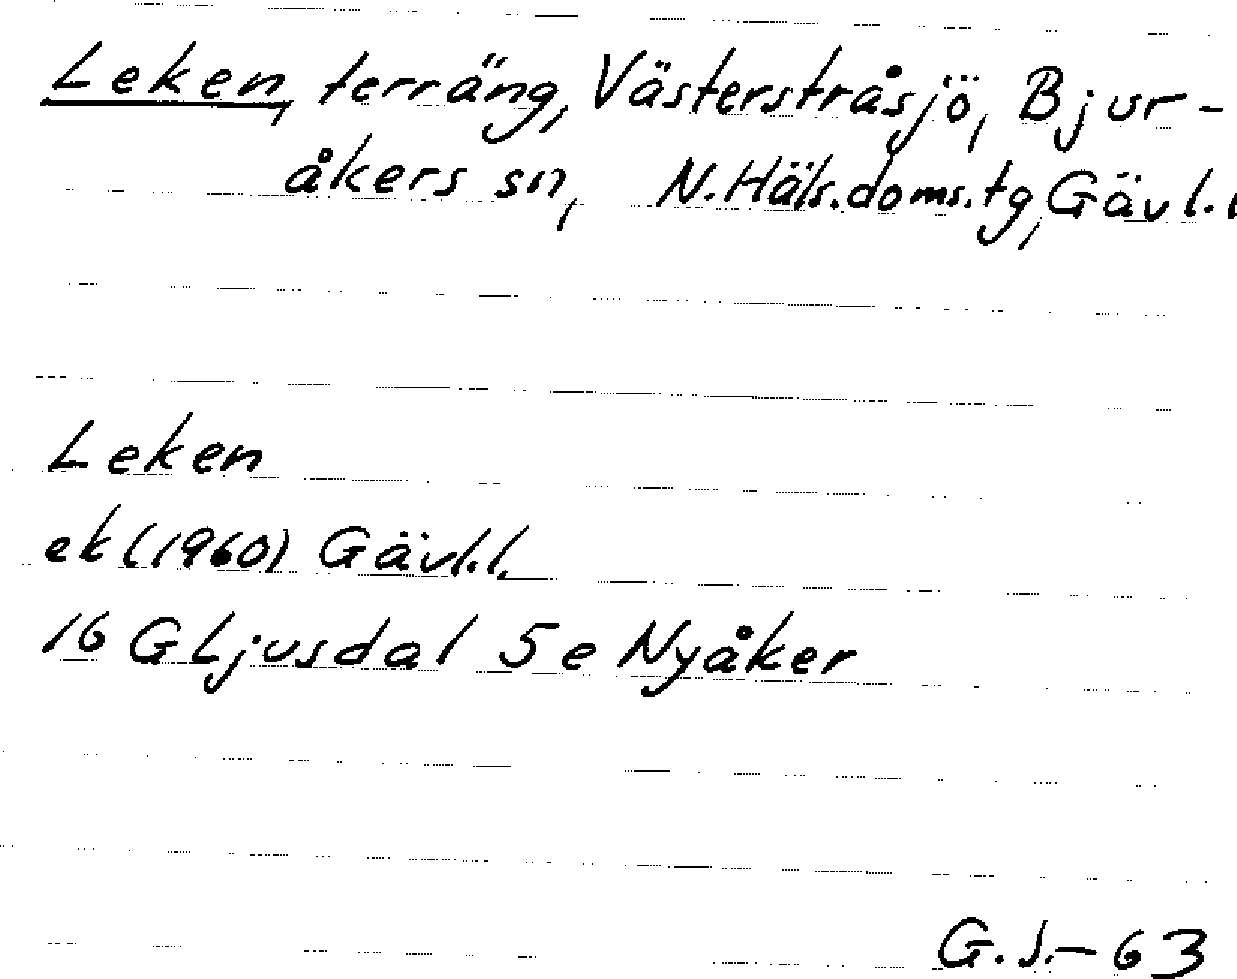 Leken, terräng, Västerstråsjö, Bjur-
åkers sn, N.Häls.doms.tg, Gävl.l
Leken
ek (1960) Gävl.l.
16 G Ljusdal 5e Nyåker
G.J.-63